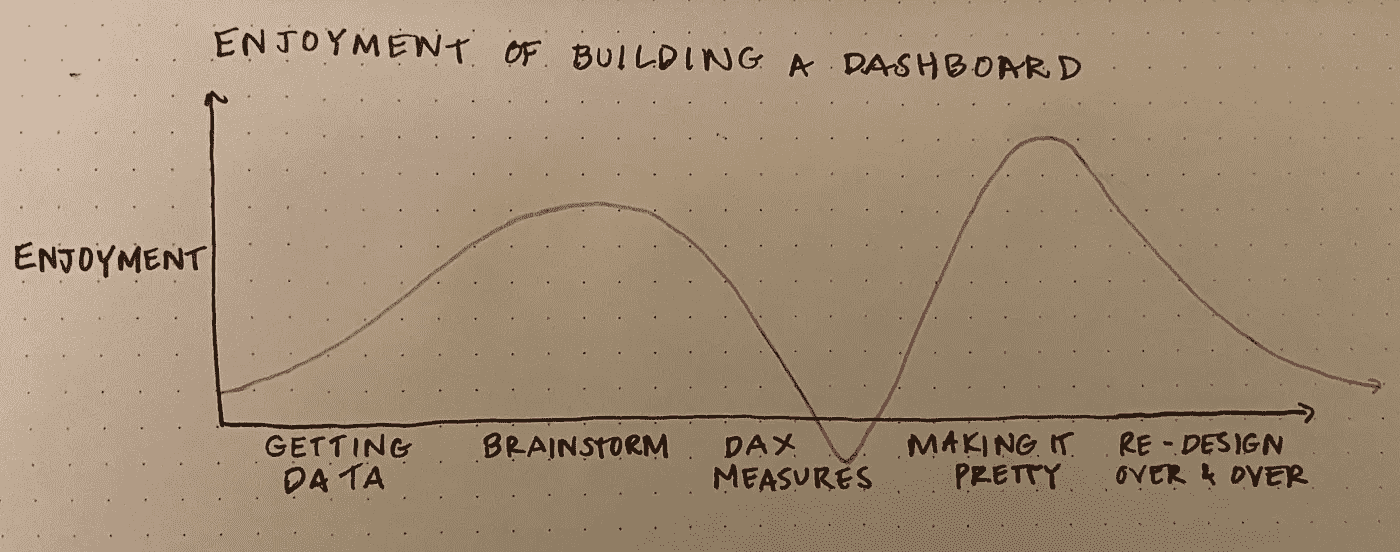 ENJOYMENT OF BUILDING A DASHBOARD
ENJOYMENT
GETTING DATA
BRAINSTORM
DAX MEASURES
MAKING IT PRETTY
RE-DESIGN OVER & OVER